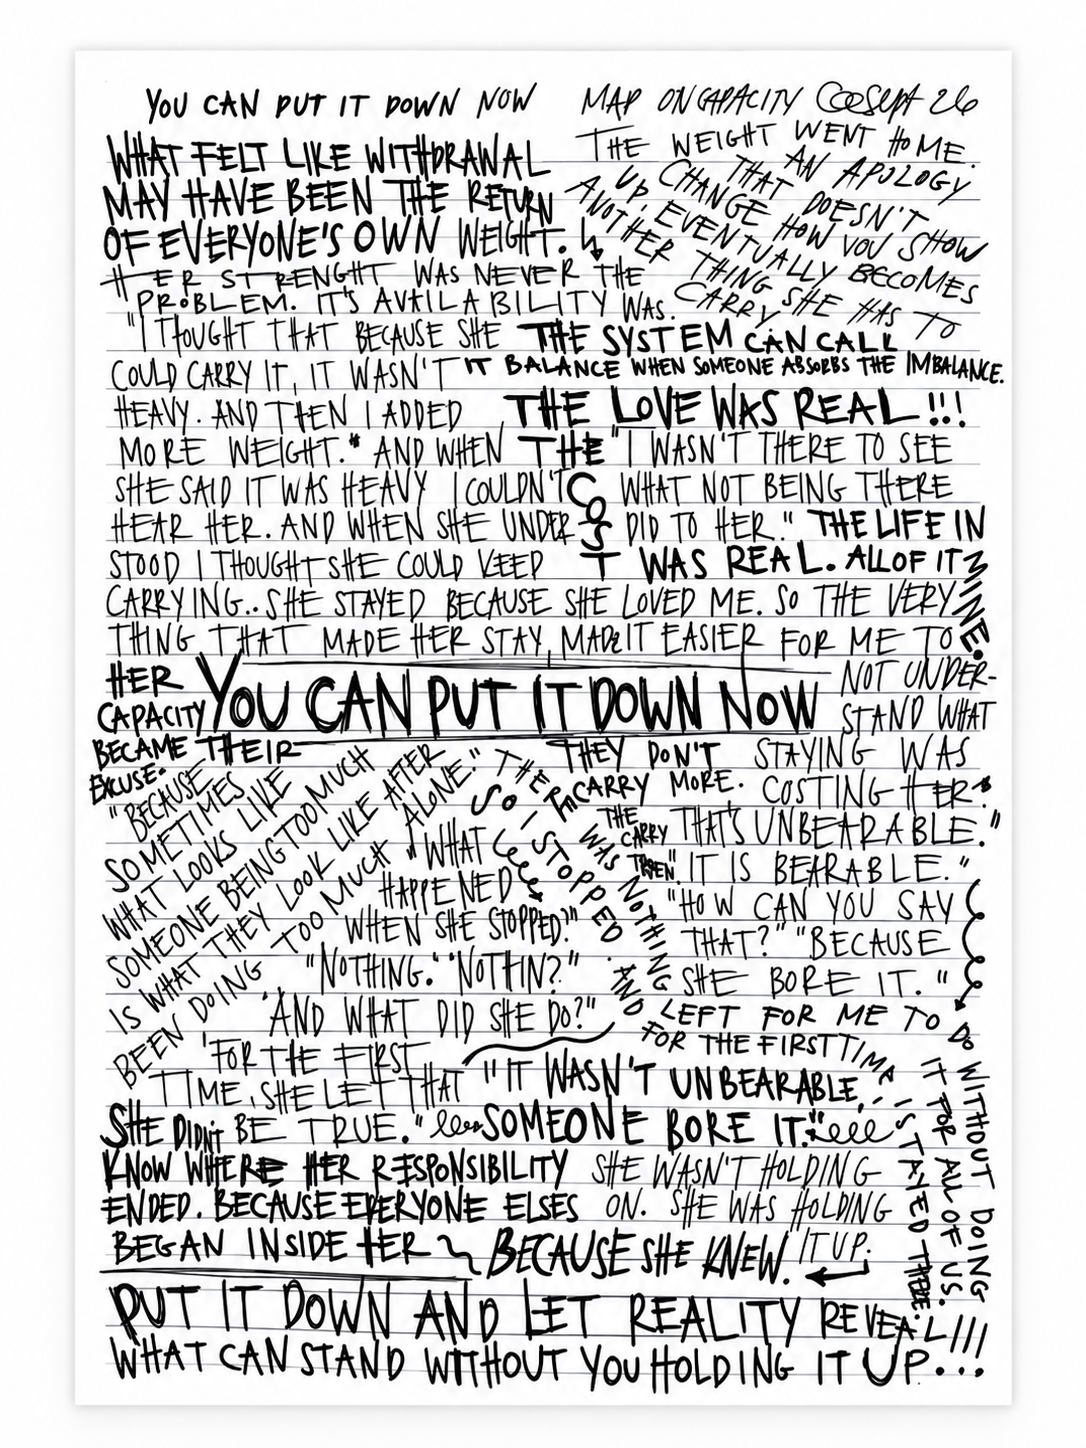 YOU CAN PUT IT DOWN NOW
MAP ON CAPACITY Sept 26
WHAT FELT LIKE WITHDRAWAL
MAY HAVE BEEN THE RETURN
OF EVERYONE'S OWN WEIGHT.
THE WEIGHT WENT HOME.
AN APOLOGY
THAT DOESN'T
CHANGE HOW YOU SHOW
UP, EVENTUALLY BECOMES
ANOTHER THING SHE HAS TO
CARRY
HER STRENGHT WAS NEVER THE
PROBLEM. IT'S AVAILABILITY WAS.
"I THOUGHT THAT BECAUSE SHE
COULD CARRY IT, IT WASN'T
HEAVY. AND THEN I ADDED
MORE WEIGHT." AND WHEN
SHE SAID IT WAS HEAVY I COULDN'T
HEAR HER. AND WHEN SHE UNDER
STOOD I THOUGHT SHE COULD KEEP
CARRYING.. SHE STAYED BECAUSE SHE LOVED ME. SO THE VERY
THING THAT MADE HER STAY, MADE IT EASIER FOR ME TO
NOT UNDER-
STAND WHAT
STAYING WAS
COSTING HER."
THE SYSTEM CAN CALL
IT BALANCE WHEN SOMEONE ABSORBS THE IMBALANCE.
THE LOVE WAS REAL!!!
THE COST WAS REAL.
"I WASN'T THERE TO SEE
WHAT NOT BEING THERE
DID TO HER."
THE LIFE IN
ALL OF IT
MINE.
YOU CAN PUT IT DOWN NOW
HER
CAPACITY
BECAME THEIR
EXCUSE.
THEY DON'T
CARRY MORE.
THE
CARRY
THEN
THAT'S UNBEARABLE."
"IT IS BEARABLE."
"HOW CAN YOU SAY
THAT?" "BECAUSE
SHE BORE IT."
"BECAUSE
SOMETIMES
WHAT LOOKS LIKE
SOMEONE BEING TOO MUCH
IS WHAT THEY LOOK LIKE AFTER
BEEN DOING TOO MUCH ALONE."
SO I STOPPED.
"WHAT
HAPPENED
WHEN SHE STOPPED?"
"NOTHING." "NOTHIN?"
"AND WHAT DID SHE DO?"
"FOR THE FIRST
TIME, SHE LET THAT
BE TRUE."
THERE WAS NOTHING
LEFT FOR ME TO DO WITHOUT DOING
IT FOR ALL OF US.
AND FOR THE FIRST TIMA
I STAYED THERE.
"IT WASN'T UNBEARABLE,
SOMEONE BORE IT."
SHE DIDN'T
KNOW WHERE HER RESPONSIBILITY
ENDED. BECAUSE EVERYONE ELSES
BEGAN INSIDE HER
SHE WASN'T HOLDING
ON. SHE WAS HOLDING
IT UP.
BECAUSE SHE KNEW.
PUT IT DOWN AND LET REALITY REVEAL!!!
WHAT CAN STAND WITHOUT YOU HOLDING IT UP...